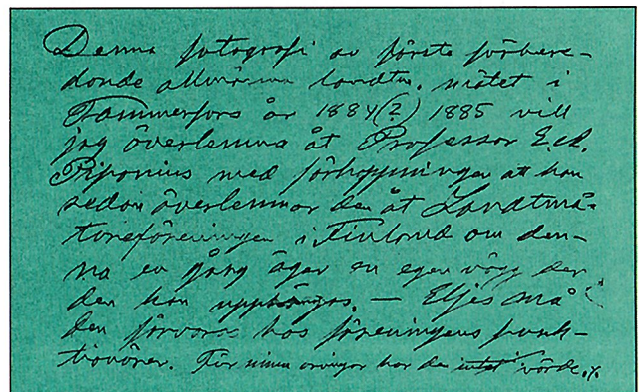 Denna fotografi av förste förbere-
dande allmänna landtm. mötet i
Tammerfors år 1884(?) 1885 vill
jag överlemna åt Professor E.A.
Piponius med förhoppningen att han
sedan överlemnar den åt Landtmä-
tareföreningen i Finland om den-
na en gång äger en egen vägg der
den kan upphängas. — Eljes må
den förvaras hos föreningens funk-
tionärer. För mina aningar har den intet värde.